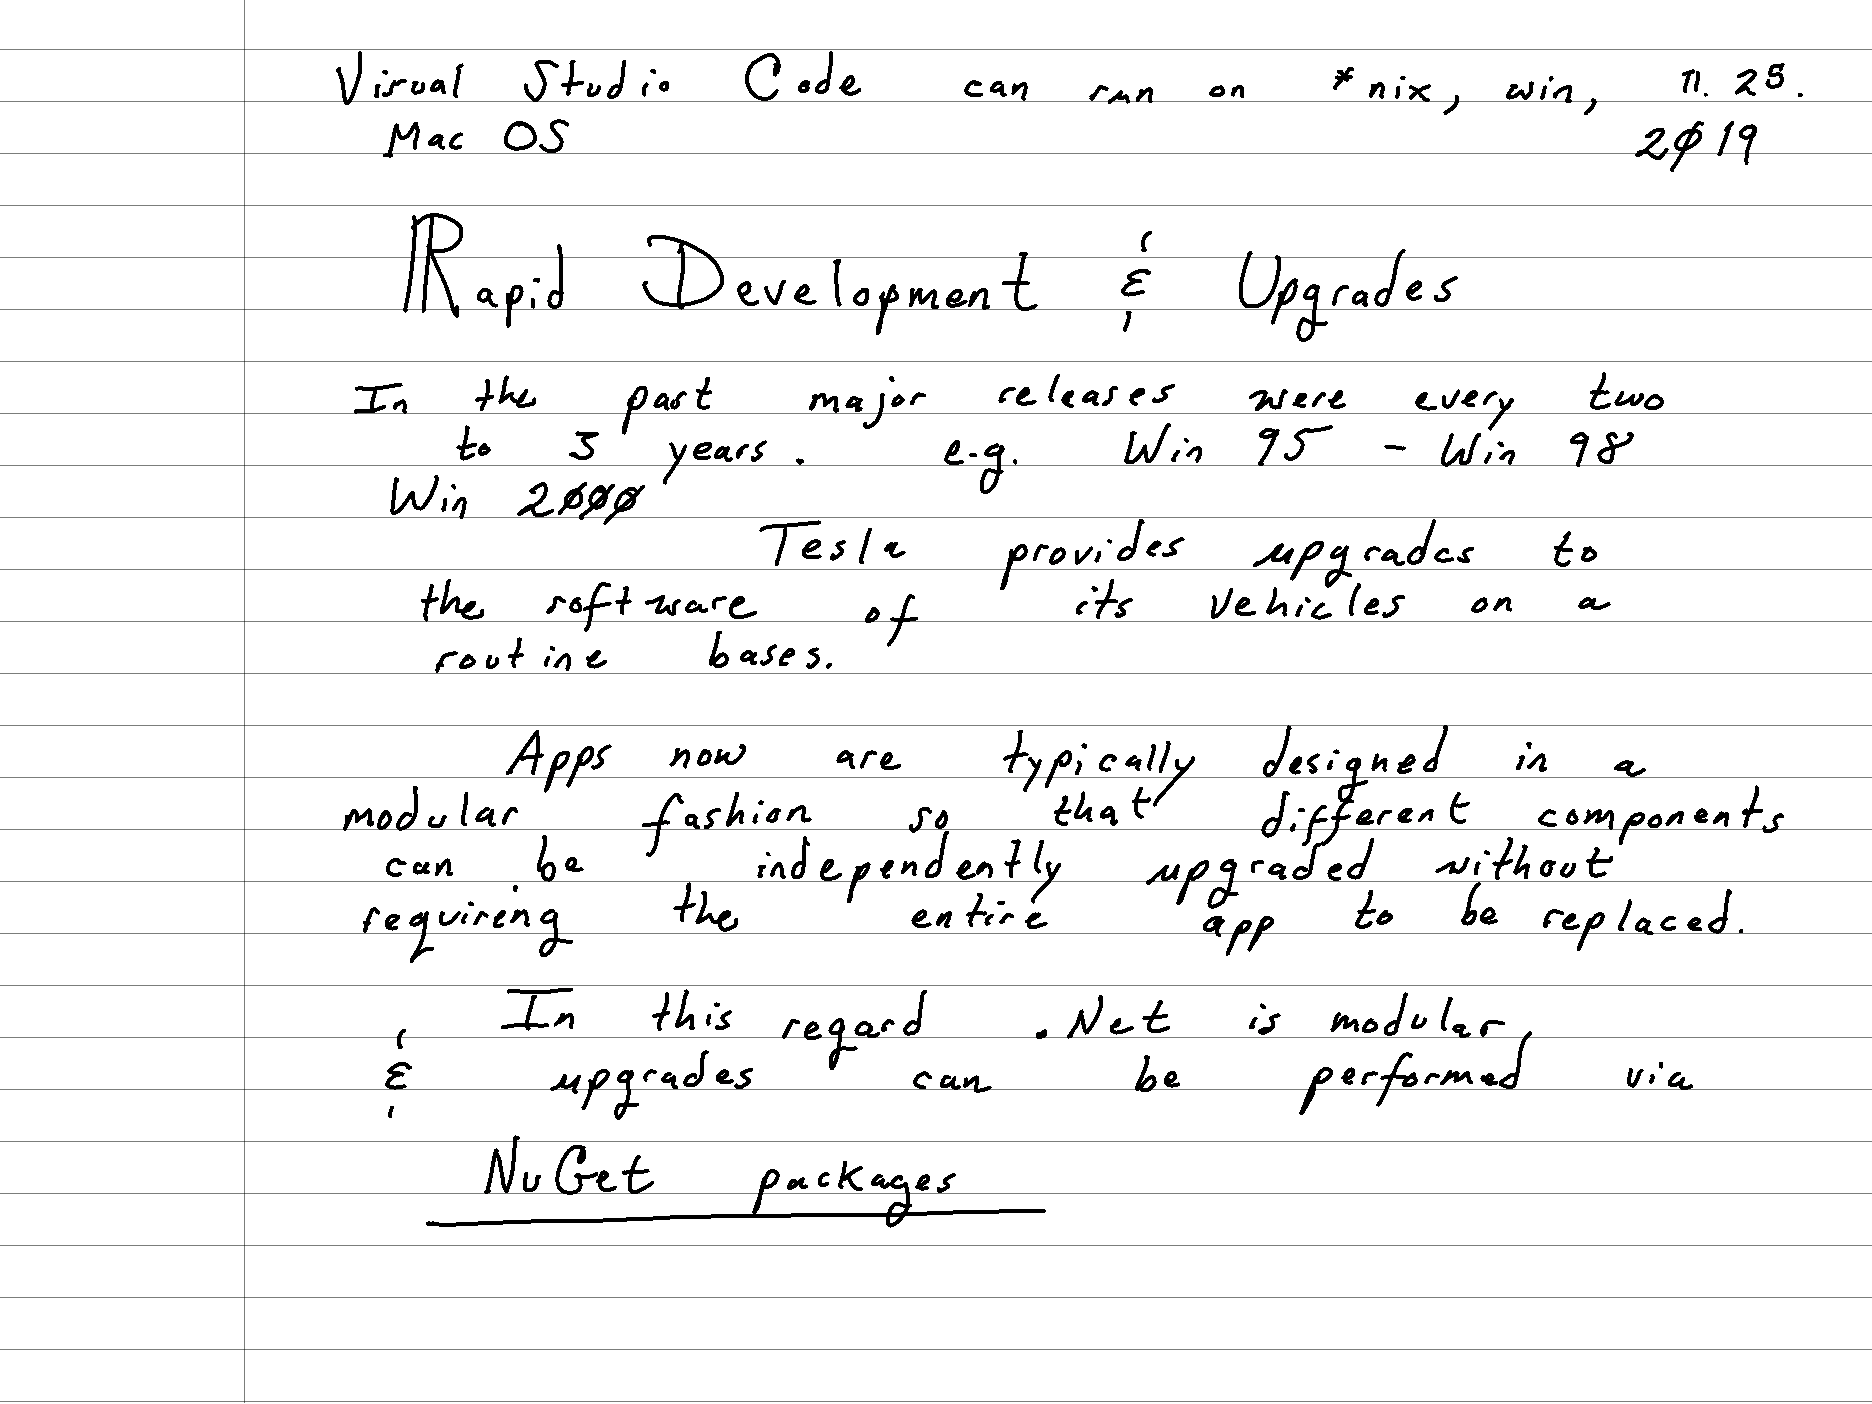 Visual Studio Code can run on *nix, win, 11. 25.
Mac OS 2019
Rapid Development & Upgrades
In the past major releases were every two
to 3 years. e.g. Win 95 - Win 98
Win 2000
Tesla provides upgrades to
the software of its vehicles on a
routine bases.
Apps now are typically designed in a
modular fashion so that different components
can be independently upgraded without
requireng the entire app to be replaced.
In this regard .Net is modular,
& upgrades can be performed via
NuGet packages